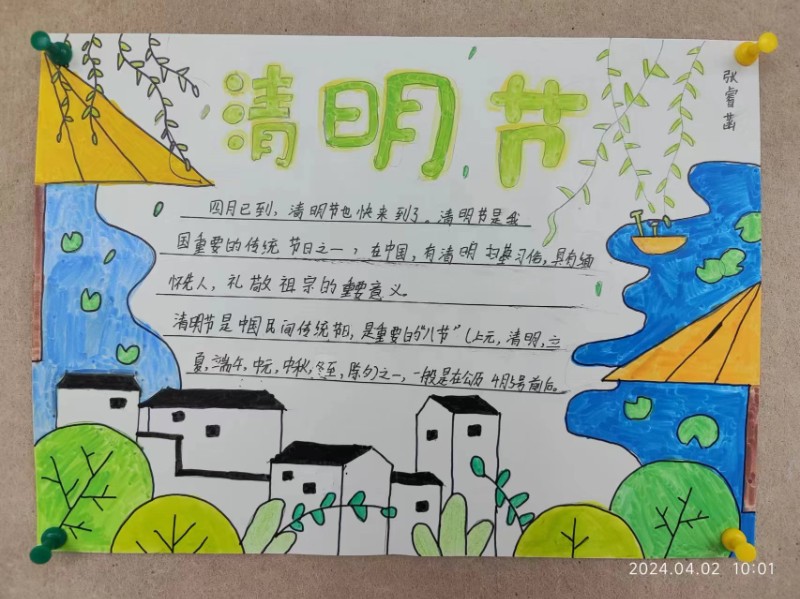 清明节
张睿菡
四月已到，清明节也快来到了。清明节是我
国重要的传统节日之一，在中国，有清明扫墓习俗，具有缅
怀先人，礼敬祖宗的重要意义。
清明节是中国民间传统节日，是重要的“八节”（上元，清明，立
夏，端午，中元，中秋，冬至，除夕）之一，一般是在公历4月5号前后。
2024.04.02 10:01